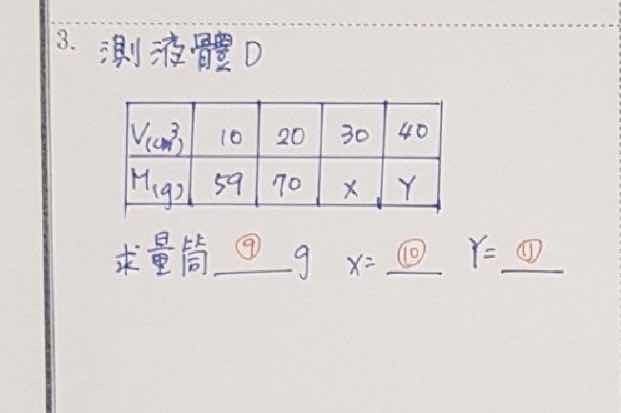 3. 測液體D
V(cm³) 10 20 30 40
M(g) 59 70 X Y
求量筒 ⑨ g X= ⑩ Y= ⑪